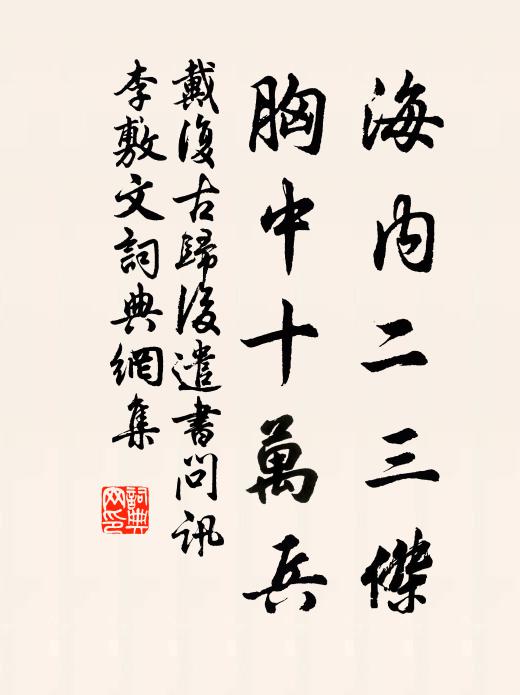 海内二三傑
胸中十萬兵
戴復古歸後遣書問訊
李敷文詞典網集
詞典
网印